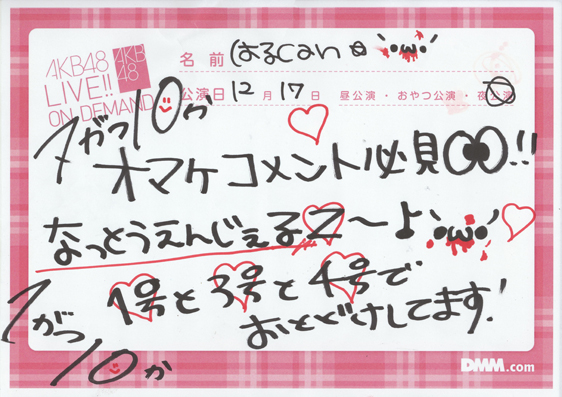 AKB48
LIVE!!
ON DEMAND
AKB
48
名前 はるcan☆ ・ω・
公演日 12月17日 昼公演・おやつ公演・夜公演
7がつ10か
オマケコメント必見!!
なっとうえんじぇるZ〜よ ・ω・
1号と3号と4号で
おとどけしてます!
7がつ
10か
DMM.com